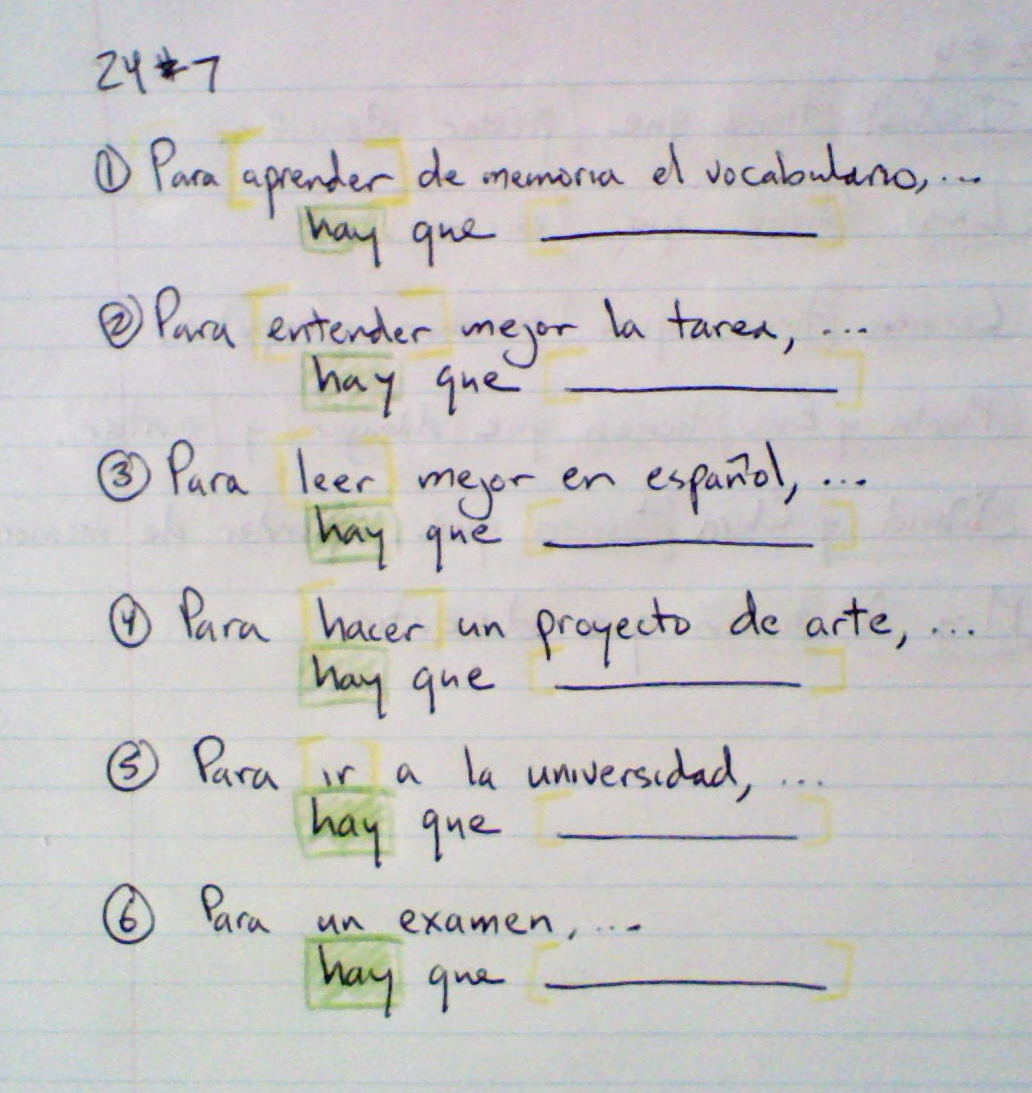 24 #7
① Para aprender de memoria el vocabulario, ...
hay que ____________
② Para entender mejor la tarea, ...
hay que ____________
③ Para leer mejor en español, ...
hay que ____________
④ Para hacer un proyecto de arte, ...
hay que ____________
⑤ Para ir a la universidad, ...
hay que ____________
⑥ Para un examen, ...
hay que ____________